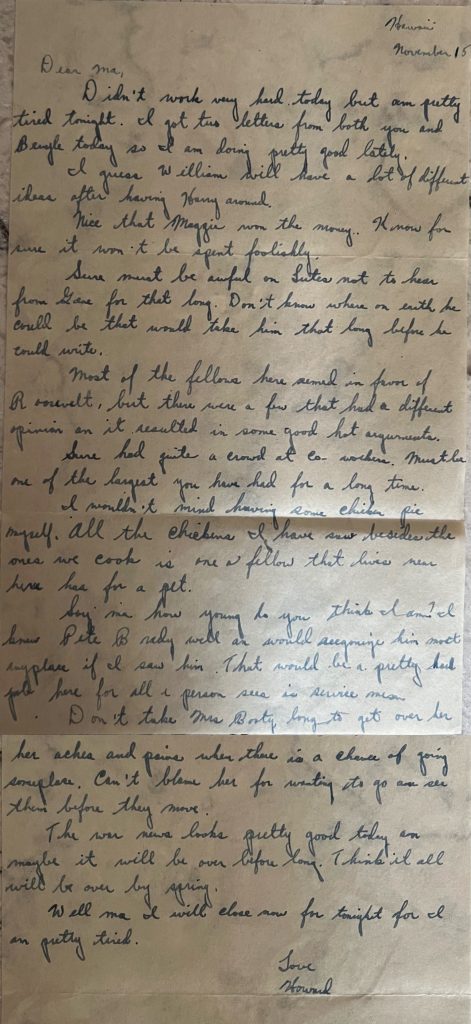 Hawaii
November 15
Dear Ma,
Didn't work very hard today but am pretty
tired tonight. I got two letters from both you and
Beryle today so I am doing pretty good lately.
I guess William will have a lot of different
ideas after having Harry around.
Nice that Maggie won the money. Know for
sure it won't be spent foolishly.
Sure must be awful on Lutes not to hear
from Gene for that long. Don't know where on earth he
could be that would take him that long before he
could write.
Most of the fellows here semed in favor of
Roosevelt, but there were a few that had a different
opinion an it resulted in some good hot arguments.
Sure had quite a crowd at co-workers. Must be
one of the largest you have had for a long time.
I wouldn't mind having some chicken pie
myself. All the chickens I have saw besides the
ones we cook is one a fellow that lives near
here has for a pet.
Say ma how young do you think I am? I
knew Pete Brady well an would reegonize him most
anyplace if I saw him. That would be a pretty hard
job here for all a person sees is service men.
Don't take Mrs Booty long to get over her
her aches and pains when there is a chance of going
someplace. Can't blame her for wanting to go an see
them before they move.
The war news looks pretty good today an
maybe it will be over before long. Think it all
will be over by spring.
Well ma I will close now for tonight for I
am pretty tired.
Love
Howard